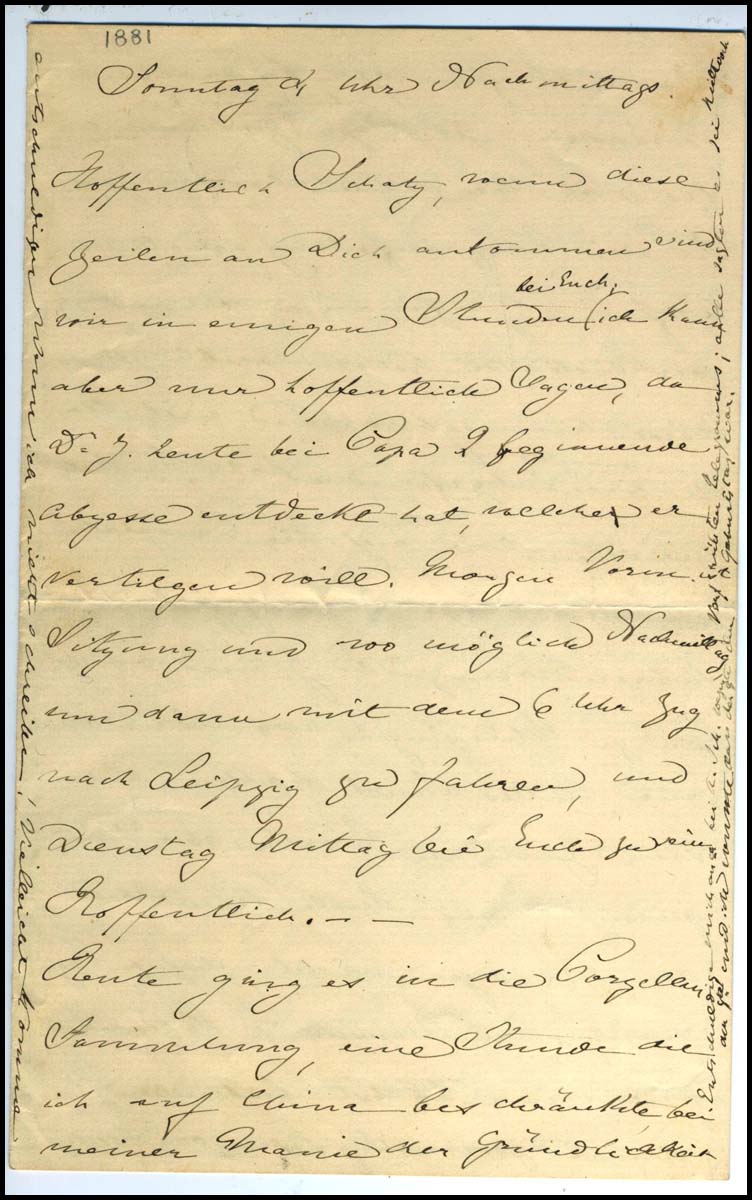 1881
Sonntag 4 Uhr Nachmittags.
Hoffentlich Schatz, wenn diese
Zeilen an Dich ankommen sind
bei Euch,
wir in einigen Stunden (ich kann
aber nur hoffentlich sagen, da
Dr. J. heute bei Papa 2 beginnende
Abzesse entdeckt hat, welche er
vertilgen will. Morgen Vorm.
Sitzung und wo möglich Nachmittag
um dann mit dem 6 Uhr Zug
nach Leipzig zu fahren, und
Dienstag Mittag bei Euch zu sein
Hoffentlich. — —
Heute ging es in die Porzellan
Sammlung, eine Stunde die
ich auf China beschränkte, bei
meiner Manie der Gründlichkeit
entschuldigen wenn ich nicht schreibe, Vielleicht komme
Entschuldige mich auch bei alle sagten es sei
und ich wusste Geburtstag war.